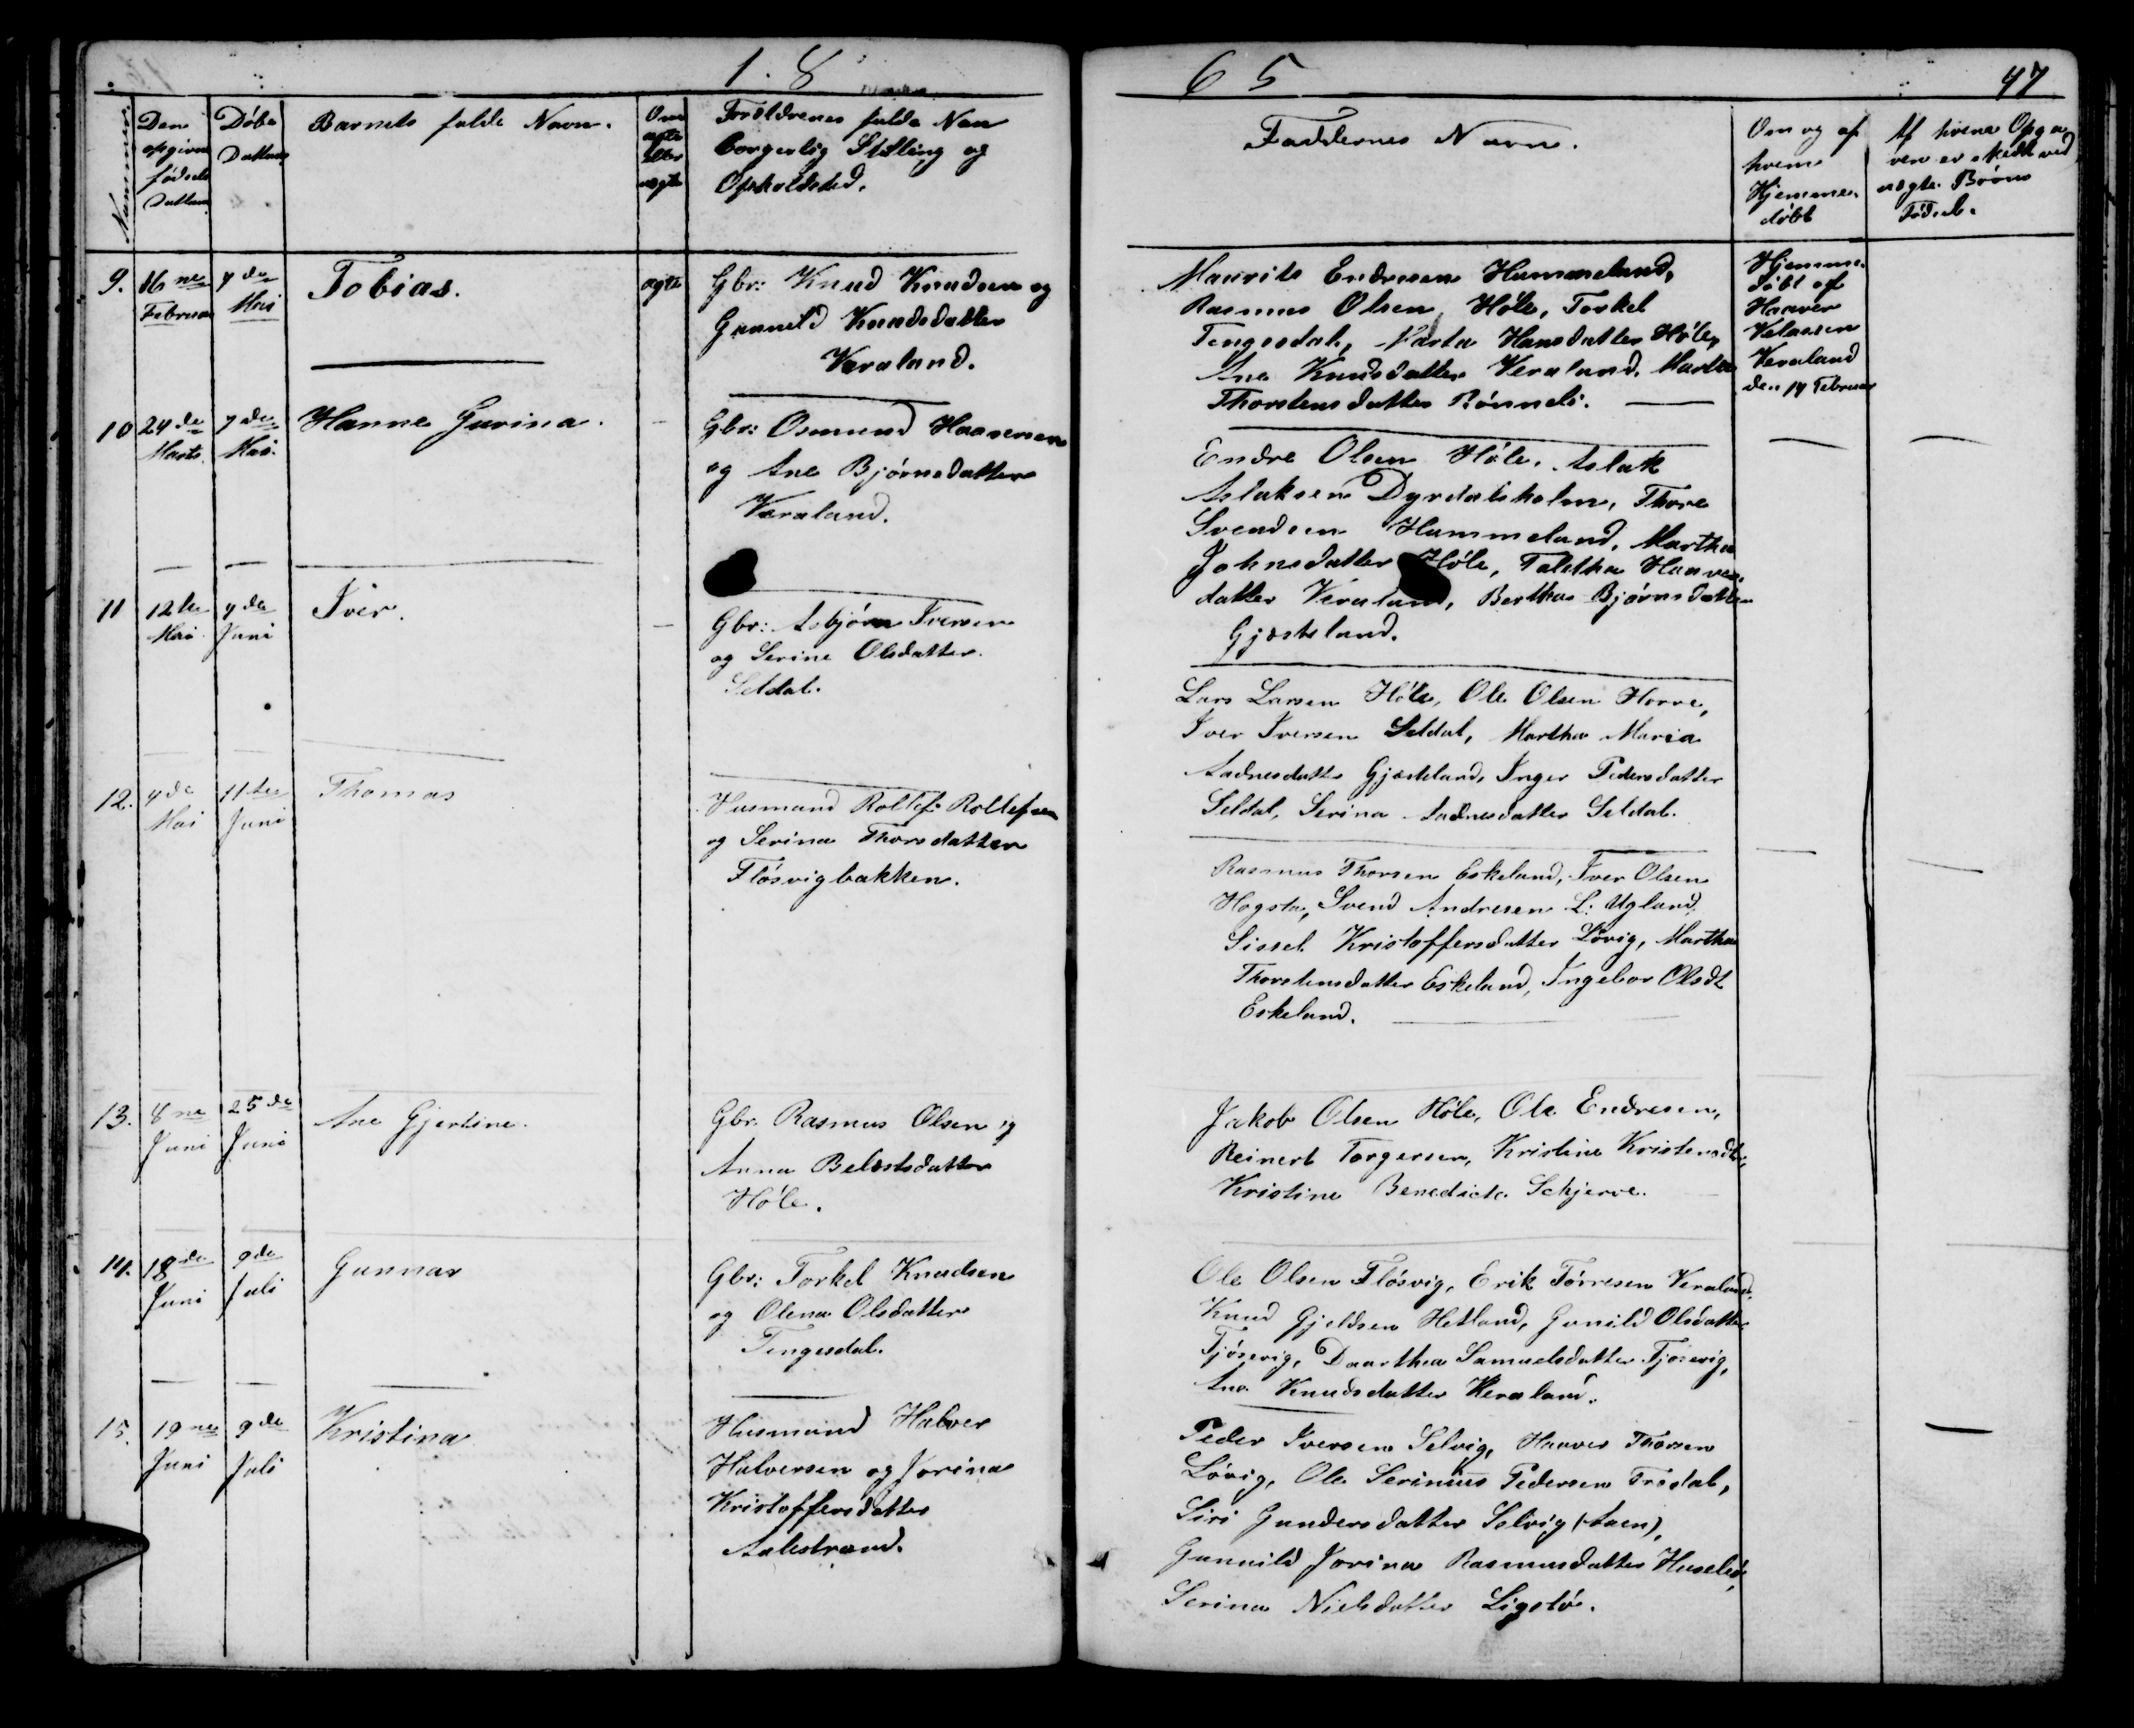 1. 8
6 5
47
Nummer.
Den opgivne fødsels Dattum
Døbe Dattum
Barnets fulde Navn.
Om ægte eller uægte
Forældrenes fulde Nav
Borgerlig Stilling og
Opholdsted.
Faddernes Navn.
Om og af
hvem
Hjemme-
døbt
Af hvem Opga
ven er skedt ved
uægte Børns
Fødsel.
9.
16ne
Februar
7de
Mai
Tobias.
ægte
Gbr: Knud Knudsen og
Gunnild Knudsdatter
Veraland.
Maurits Endresen Hammeland,
Rasmus Olsen Høle, Torkel
Tengesdal, Marta Hansdatter Høle,
Ane Knudsdatter Veraland, Marta
Thorstensdatter Rønneli.
Hjemme-
døbt af
Haaver
Veraland
den 19 Februar
10
24de
Marts
7de
Mai.
Hanne Gurina.
Gbr: Osmund Haaversen
og Ane Bjørnsdatter
Veraland.
Endre Olsen Høle, Aslak
Aslaksen Dyrdalsholm, Thore
Svendsen Hammeland, Martha
Johnsdatter Høle, Taletha Haavers
datter Veraland, Bertha Bjørnsdatter
Gjæsteland.
11
12te
Mai
4de
Juni
Iver.
Gbr: Asbjørn Iversen
og Serine Olsdatter
Seldal.
Lars Larsen Høle, Ole Olsen Horve,
Iver Iversen Seldal, Martha Maria
Aadnesdatter Gjæsteland, Inger Pedersdatter
Seldal, Serina Aadnesdatter Seldal.
12.
4de
Mai
11te
Juni
Thomas
Husmand Rollef Rollefsen
og Serina Thorsdatter
Fløsvigbakken.
Rasmus Thorsen Eskeland, Iver Olsen
Hogsta, Svend Andresen L: Ugland,
Sissel Kristoffersdatter Løvig, Martha
Thorstensdatter Eskeland, Ingebor Olsdt
Eskeland.
13.
8ne
Juni
25de
Juni
Ane Gjertine.
Gbr. Rasmus Olsen og
Anna Belestsdatter
Høle.
Jakob Olsen Høle, Ole Endresen,
Reinert Torgersen, Kristine Kristensdtr,
Kristine Benedicte Schjerve.
14.
18de
Juni
9de
Juli
Gunnar
Gbr: Torkel Knudsen
og Olena Olsdatter
Tengesdal.
Ole Olsen Fløsvig, Erik Tørresen Veraland,
Knud Gjeldsen Hetland, Gunild Olsdatter
Fjøsvig, Daarthea Samuelsdatter Fjøsvig,
Ane Knudsdatter Veraland.
15.
19ne
Juni
9de
Juli
Kristina
Husmand Halver
Halversen og Jorina
Kristoffersdatter
Aalestrand.
Peder Iversen Selvig, Haaver Thorsen
Løvig, Ole Serinius Pedersen Trødal,
Siri Gundersdatter Selvig (Aaen),
Gunnild Jorina Rasmusdatter Husebø,
Serina Nielsdatter Ligstø.